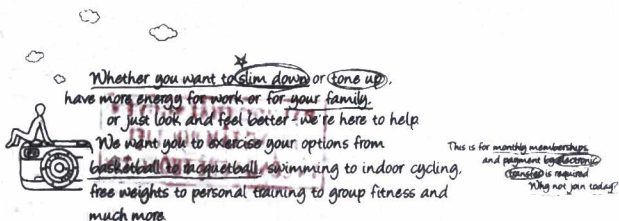 Whether you want to slim down or tone up,
have more energy for work or for your family,
or just look and feel better - we're here to help.
We want you to exercise your options from
basketball to racquetball, swimming to indoor cycling,
free weights to personal training to group fitness and
much more.
This is for monthly memberships
and payment by electronic
transfer is required
Why not join today?